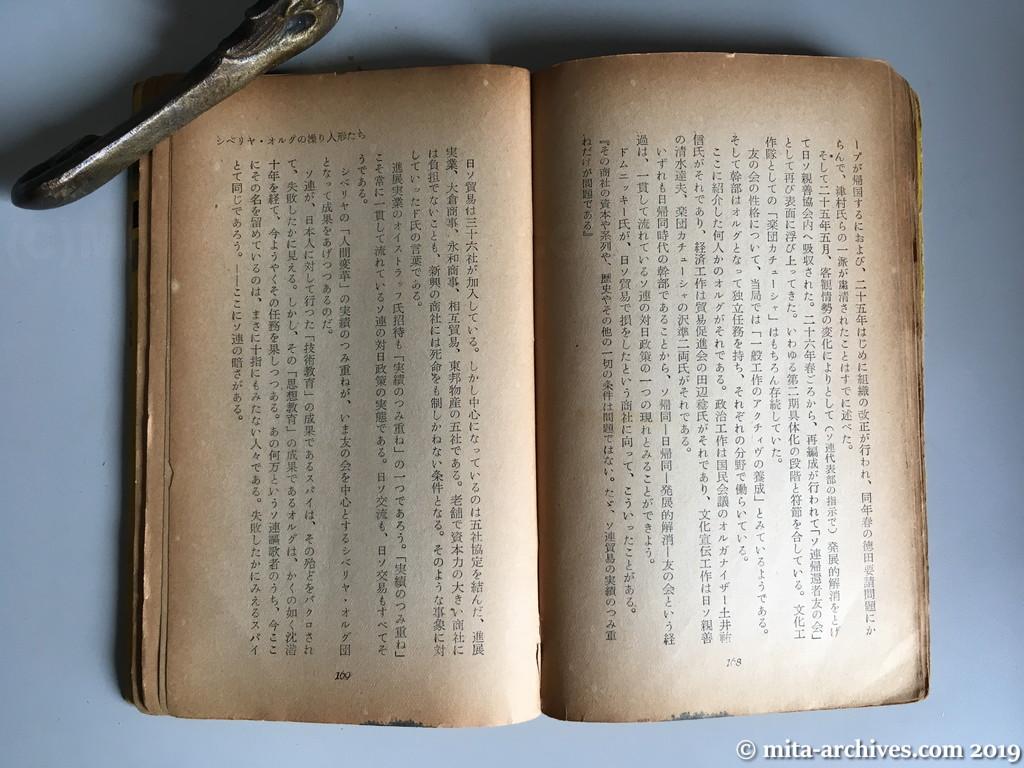 ープが帰国するにおよび、二十五年はじめに組織の改正が行われ、同年春の徳田要請問題にか
らんで、津村氏らの一派が粛清されたことはすでに述べた。
そして二十五年五月、客観情勢の変化によりとして(ソ連代表部の指示で)発展的解消をとげ
て日ソ親善協会内へ吸収された。二十六年春ごろから、再編成が行われて「ソ連帰還者友の会」
として再び表面に浮び上ってきた。いわゆる第二期具体化の段階と符節を合している。文化工
作隊としての「楽団カチューシャ」はもちろん存続していた。
友の会の性格について、当局では「一般工作のアクチィヴの養成」とみているようである。
そして幹部はオルグとなって独立任務を持ち、それぞれの分野で働らいている。
ここに紹介した何人かのオルグがそれである。政治工作は国民会議のオルガナイザー土井祐
信氏がそれであり、経済工作は貿易促進会の田辺稔氏がそれであり、文化宣伝工作は日ソ親善
の清水達夫、楽団カチューシャの沢準二両氏がそれである。
いずれも日帰同時代の幹部であることから、ソ帰同―日帰同―発展的解消―友の会という経
過は、一貫して流れているソ連の対日政策の一つの現れとみることができよう。
ドムニッキー氏が、日ソ貿易で損をしたという商社に向って、こういったことがある。
『その商社の資本や系列や、歴史やその他の一切の条件は問題ではない。たゞ、ソ連貿易の実績のつみ重
ねだけが問題である』
168
シベリヤ・オルグの操り人形たち
日ソ貿易は三十六社が加入している。しかし中心になっているのは五社協定を結んだ、進展
実業、大倉商事、永和商事、相互貿易、東邦物産の五社である。老舗で資本力の大きい商社に
は負担でないことも、新興の商社には死命をも制しかねない条件となる。そのような事象に対
していったド氏の言葉である。
進展実業のオイストラッフ氏招待も「実績のつみ重ね」の一つであろう。「実績のつみ重ね」
こそ常に一貫して流れているソ連の対日政策の実態である。日ソ交流も、日ソ交易もすべてそ
うである。
シベリヤの「人間変革」の実績のつみ重ねが、いま友の会を中心とするシベリヤ・オルグ団
となって成果をあげつつあるのだ。
ソ連が、日本人に対して行つた「技術教育」の成果であるスパイは、その殆どをバクロされ
て、失敗したかに見える。しかし、その「思想教育」の成果であるオルグは、かくの如く沈潜
十年を経て、今ようやくその任務を果しつつある。あの何万というソ連謳歌者のうち、今ここ
にその名を留めているのは、まさに十指にもみたない人々である。失敗したかにみえるスパイ
とて同じであろう。――ここにソ連の暗さがある。
169
© mita-archives.com 2019